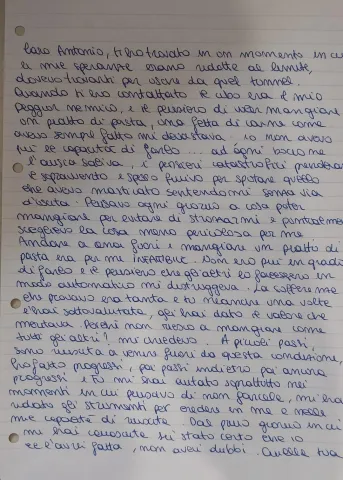 Caro Antonio, ti ho trovato in un momento in cui
le mie speranze erano ridotte al limite,
dovevo trovarti per uscire da quel tunnel.
Quando ti ho contattato il cibo era il mio
peggior nemico, e il pensiero di voler mangiare
un piatto di pasta, una fetta di carne come
avevo sempre fatto mi devastava. Io non avevo
più le capacità di farlo ... ad ogni boccone
l'ansia saliva, i pensieri catastrofici prendevano
il sopravvento e spesso finivo per sputare quello
che avevo masticato sentendomi senza via
d'uscita. Pensavo ogni giorno a cosa poter
mangiare per evitare di strozzarmi e puntualmente
sceglievo la cosa meno pericolosa per me.
Andare a cena fuori e mangiare un piatto di
pasta era per me IMPOSSIBILE. Non ero più in grado
di farlo e il pensiero che gli altri lo facessero in
modo automatico mi distruggeva. La sofferenza
che provavo era tanta e tu neanche una volta
l'hai sottovalutata, gli hai dato il valore che
meritava. Perché non riesco a mangiare come
tutti gli altri?, mi chiedevo. A piccoli passi,
sono riuscita a venire fuori da questa condizione,
ho fatto progressi, poi passi indietro poi ancora
progressi e tu mi hai aiutato soprattutto nei
momenti in cui pensavo di non farcela, mi hai
ridato gli strumenti per credere in me e nelle
mie capacità di riuscita. Dal primo giorno in cui
mi hai conosciuta sei stato certo che io
ce l'avrei fatta, non avevi dubbi. Quella tua